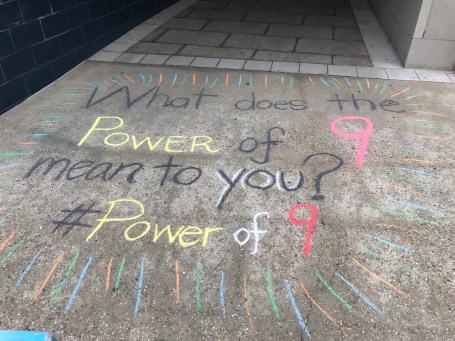 What does the
POWER of 9
mean to you?
#Power of 9